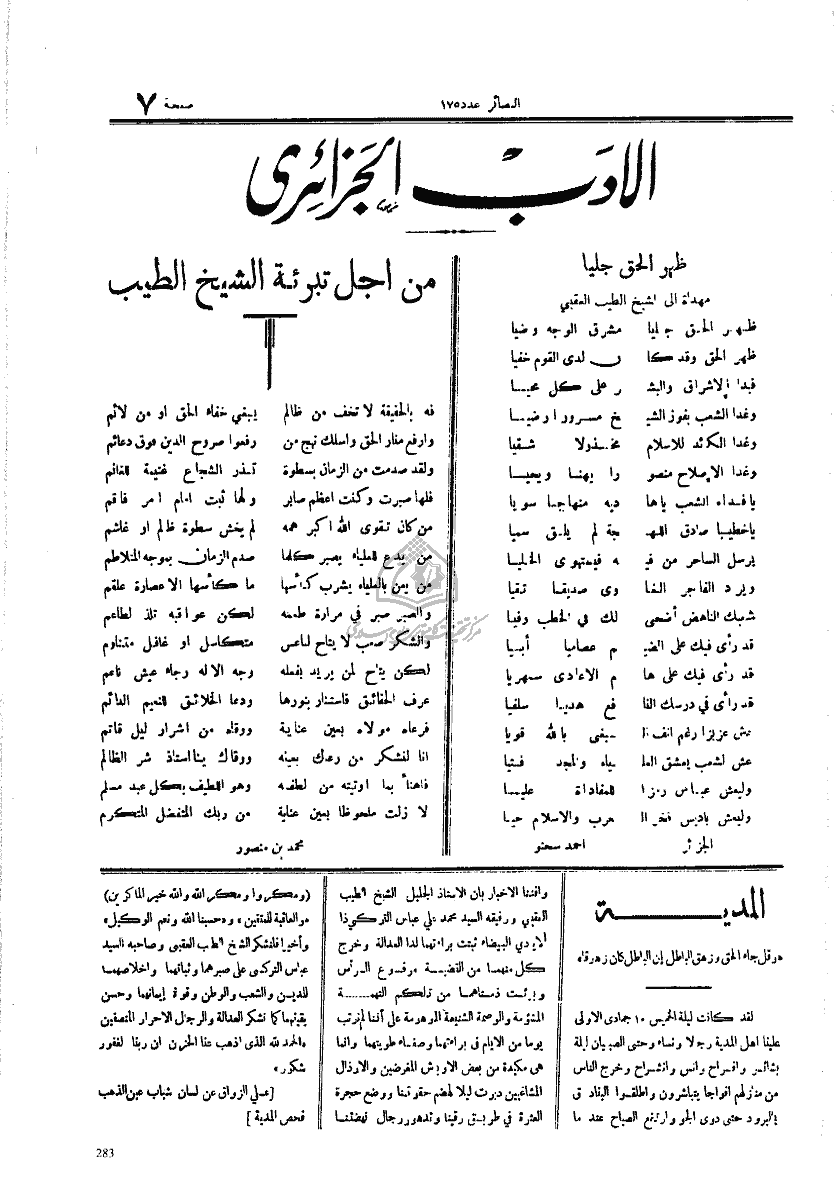 البصائر عدد ١٧٥
صفحة ٧
الادب الجزائرى
ظهر الحق جليا
مهداة الى الشيخ الطيب العقبي
ظهر الحق جليا مشرق الوجه وضيا
ظهر الحق وقد كا ن لدى القوم خفيا
فبدا الاشراق والبشـ ر على كل محيا
وغدا الشعب بفوز الشيـ خ مسرورا رضيا
وغدا الكائد للاسلام مخـذولا شقيا
وغدا الاصلاح منصو را يهنا ويحيا
يا فداء الشعب ياها ديه منهاجا سويا
ياخطيبا صادق اللهـ جة لم يلق سميا
يرسل الساحر من فيـ ه فيستهوى الخليا
ويرد الفاجر الغا وى صديقا تقيا
شعبك الناهض أضحى لك في الخطب وفيا
قد رأى فيك على الضيـ م عصاميا أبيا
قد رأى فيك على ها م الاعادى سمهريا
قد رأى في درسك النا فع هديا سلفيا
عش عزيزا رغم انف ال ـبغى بالله قويا
عش لشعب يعشق العلـ ياء والمجد فتيا
وليعش عباس رمزا للمفاداة عليا
وليعش باديس فخر الـ عرب والاسلام حيا
الجزائر احمد سحنون
من اجل تبرئة الشيخ الطيب
فه بالحقيقة لا تخف من ظالم يبغي خفاء الحق او من لائم
وارفع منار الحق واسلك نهج من رفعوا صروح الدين فوق دعائم
ولقد صدمت من الزمان بسطوة تـذر الشجاع غنيمة للغانم
فلها صبرت وكنت اعظم صابر ولها ثبت امام امر فاقم
من كان تقوى الله اكبر همه لم يخش سطوة ظالم او غاشم
من يدع للعلياء يصبر كلما صدم الزمان بموجه المتلاطم
من يمن بالعلياء يشرب كأسها ما كأسها الا عصارة علقم
والصبر صبر في مرارة طعمه لكن عواقبه تلذ لطاعم
والشكر صعب لا يتاح لناعس متكاسل او غافل متناوم
لكن يتاح لمن يريد بفعله وجه الاله رجاء عيش ناعم
عرف الحقائق فاستنار بنورها ودعا الخلائق للنعيم الدائم
فرعاه مولاه بعين عناية ووقاه من اشرار ليل قاتم
انا لنشكر من رعاك بعينه ووقاك يا استاذ شر الظالم
فاهنأ بما اوتيته من لطفه وهو اللطيف بكل عبد مسلم
لا زلت ملحوظا بعين عناية من ربك المتفضل المتكرم
محمد بن منصور
المدية
«وقل جاء الحق وزهق الباطل إن الباطل كان زهوقا»
لقد كانت ليلة الخميس ١٠ جمادى الاولى
علينا اهل المدية رجالا ونساء وحتى الصبيان ليلة
بشائر وافراح وانس وانشراح وخرج الناس
من منازلهم افواجا يتباشرون واطلقوا البنادق
بالبرود حتى دوى الجو وارتفع الصياح عند ما
وافتنا الاخبار بان الاستاذ الجليل الشيخ الطيب
العقبي ورفيقه السيد محمد علي عباس التركي ذا
الايدي البيضاء ثبتت براءتهما لدا العدالة وخرج
كل منهما من القضية مرفوع الرأس
وبرئت ذمتاهما من تلكم التهمة
المشؤمة والوصمة الشنيعة الموهومة على أننا لم نرتب
يوما من الايام في براءتهما وصفاء طويتهما وانما
هي مكيدة من بعض الاوباش المغرضين والارذال
المشاغبين دبرت ليلا لهضم حقوقنا ووضع حجرة
العثرة في طريق رقينا وتدهور رجال نهضتنا
(ومكروا ومكر الله والله خير الماكرين)
«والعاقبة للمتقين» و«حسبنا الله ونعم الوكيل»
وأخيرا فلنشكر الشيخ الطيب العقبي وصاحبه السيد
عباس التركى على صبرهما وثباتهما واخلاصهما
للدين والشعب والوطن وقوة إيمانهما وحسن
يقينهما كما نشكر العدالة والرجال الاحرار المنصفين
«الحمد لله الذى اذهب عنا الحزن ان ربنا لغفور
شكور»
[علي الزواق عن لسان شباب عين الذهب
فحص المدية]
283